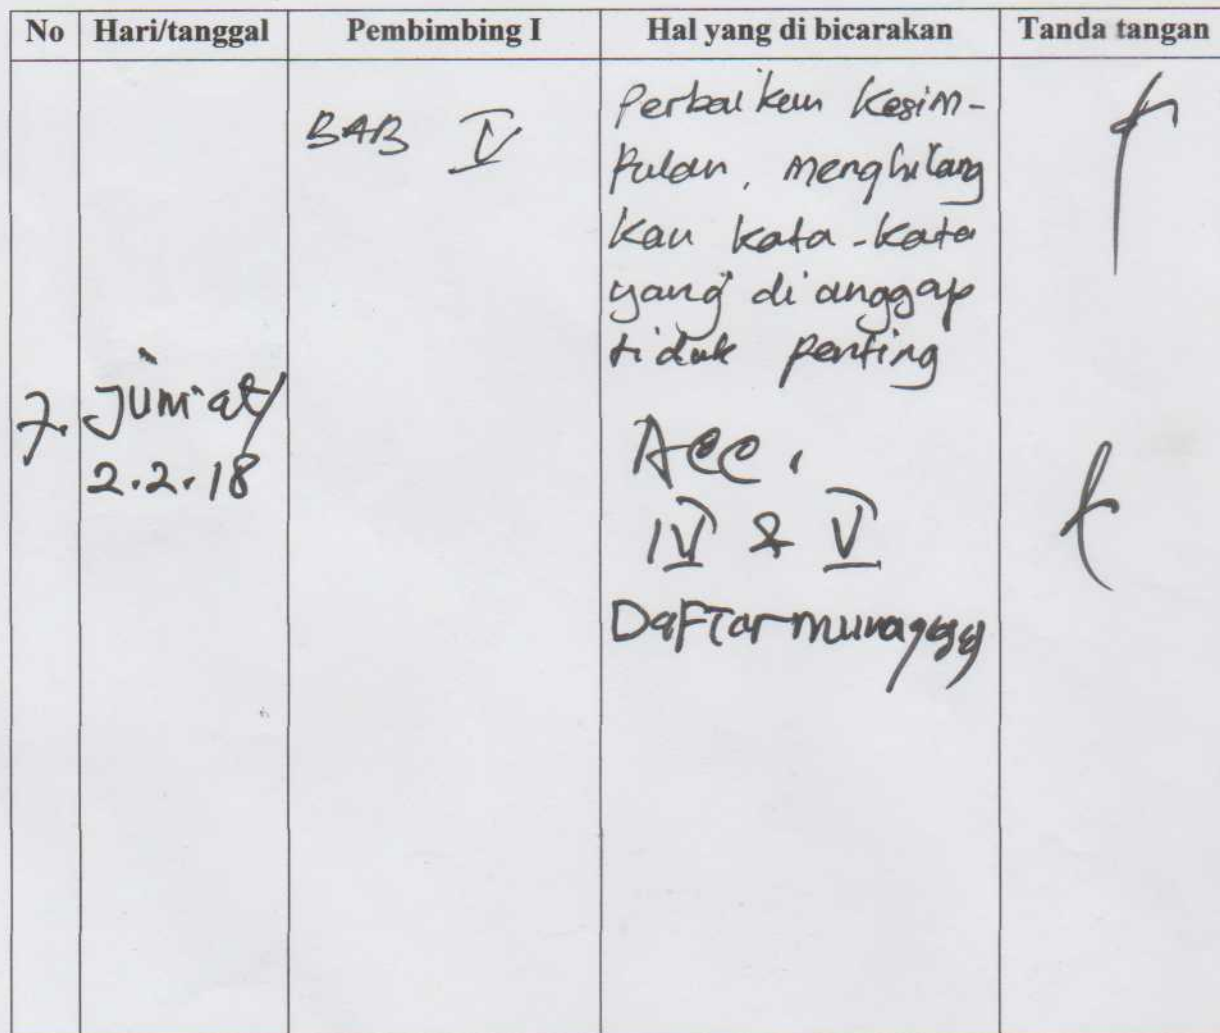 No Hari/tanggal Pembimbing I Hal yang di bicarakan Tanda tangan
BAB V
Perbaikan Kesim-
Pulan, menghilang
kan kata-kata
yang di anggap
tidak penting
7. Jum'at/
2.2.18
Acc.
IV & V
Daftar